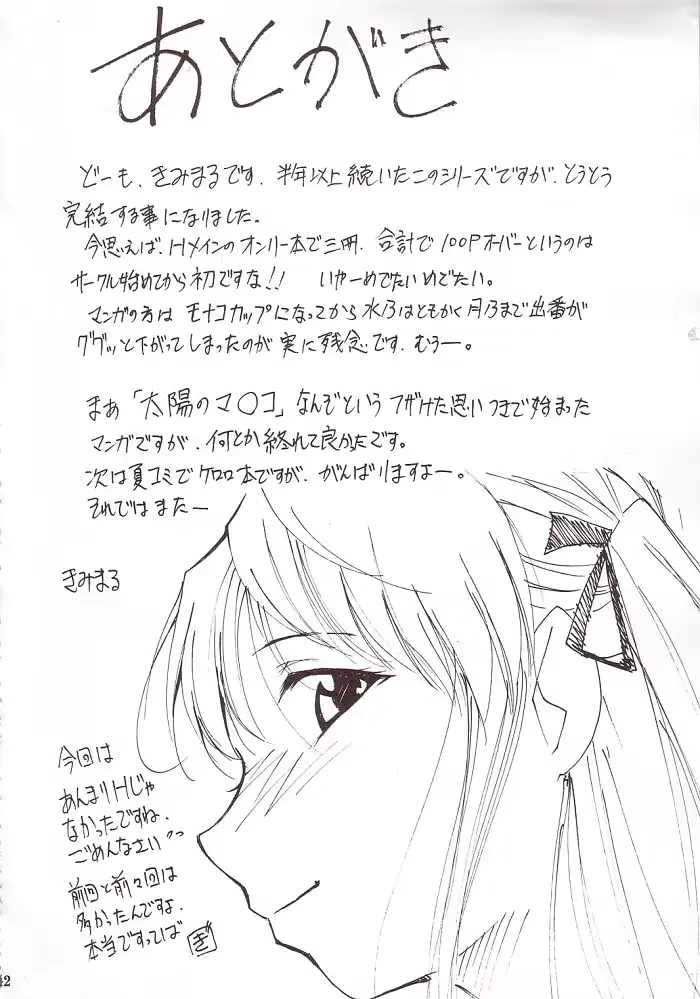 あとがき
どーも、きみまるです。半年以上続いたこのシリーズですが、とうとう
完結する事になりました。
今思えば、Hメインのオンリー本で三冊、合計で100Pオーバーというのは
サークル始めてから初ですな!! いやーめでたいめでたい。
マンガの方は モナコカップになってから 水乃はともかく月乃まで出番が
グググッと下がってしまったのが 実に残念です。むうー。
まぁ「太陽のマ〇コ」なんぞという フザけた思いつきで始まった
マンガですが、何とか終れて良かったです。
次は夏コミでケロロ本ですが、がんばりますよー。
それでは またー
きみまる
今回は
あんまりHじゃ
なかったですね。
ごめんなさい
前回と前々回は
多かったんですよ。
本当ですってば
き
42